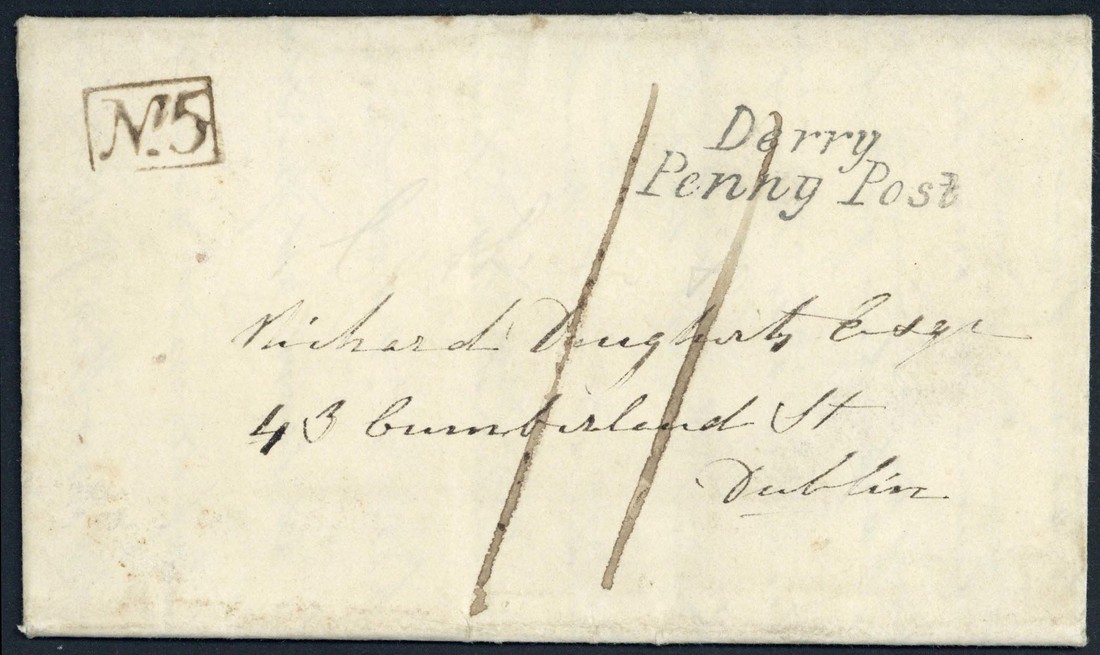 No. 5
Derry
Penny Post
11
Richard Dougherty Esqr
43 Cumberland St
Dublin